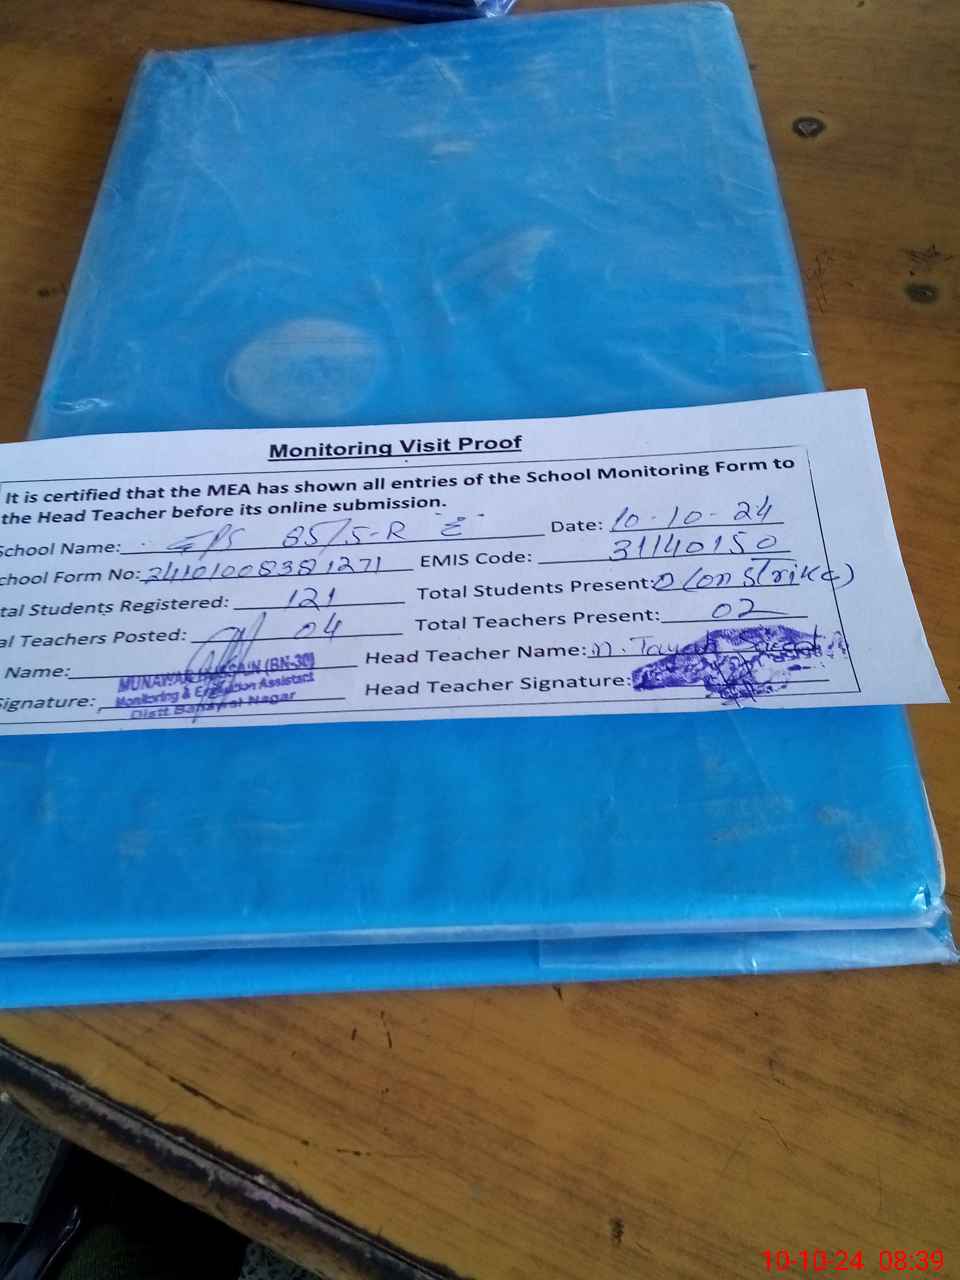 Monitoring Visit Proof
It is certified that the MEA has shown all entries of the School Monitoring Form to
the Head Teacher before its online submission.
School Name: GPS 85/5-R Date: 10-10-24
chool Form No: 24101008381271 EMIS Code: 31140150
tal Students Registered: 121 Total Students Present: 0 (on strike)
al Teachers Posted: 04 Total Teachers Present: 02
Name: Head Teacher Name: M. Tayyab
MUNAWAR HUSSAIN (BN-30)
Monitoring & Evaluation Assistant
Distt Bahawal Nagar
Signature: Head Teacher Signature:
10-10-24 08:39